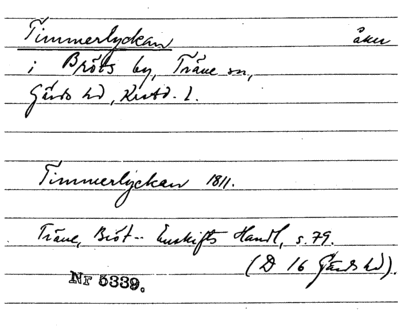 Timmerlyckan åker
i Bröts by, Träne sn,
Gärds hd, Krist. l.
Timmerlyckan 1811.
Träne, Bröt - Enskifts Handl, s. 79.
(D 16 Gärds hd).
Nr 5339.